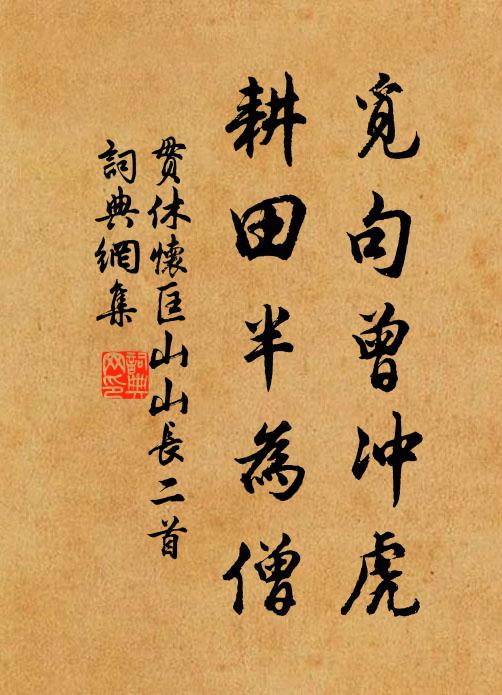 覓句曾冲虎
耕田半為僧
貫休懷匡山山長二首
詞典網集
詞典
网印